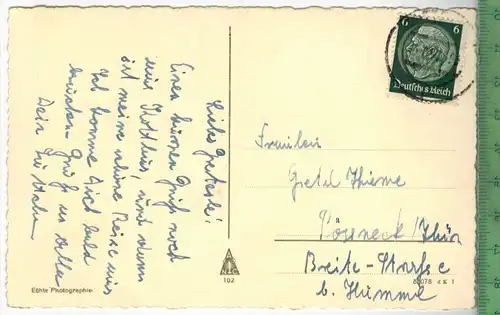 Liebe Gretel!
Einen kurzen Gruß noch
aus Cottbus, und dann
ist meine schöne Reise aus
Ich komme Dich bald
besuchen. Gruß an alle
Dein
Echte Photographie
102
6 6
Deutsches Reich
Fräulein
Gretel Thieme
Pössneck/Thür
Breite-Straße
b. Thümme
86078 d K 1